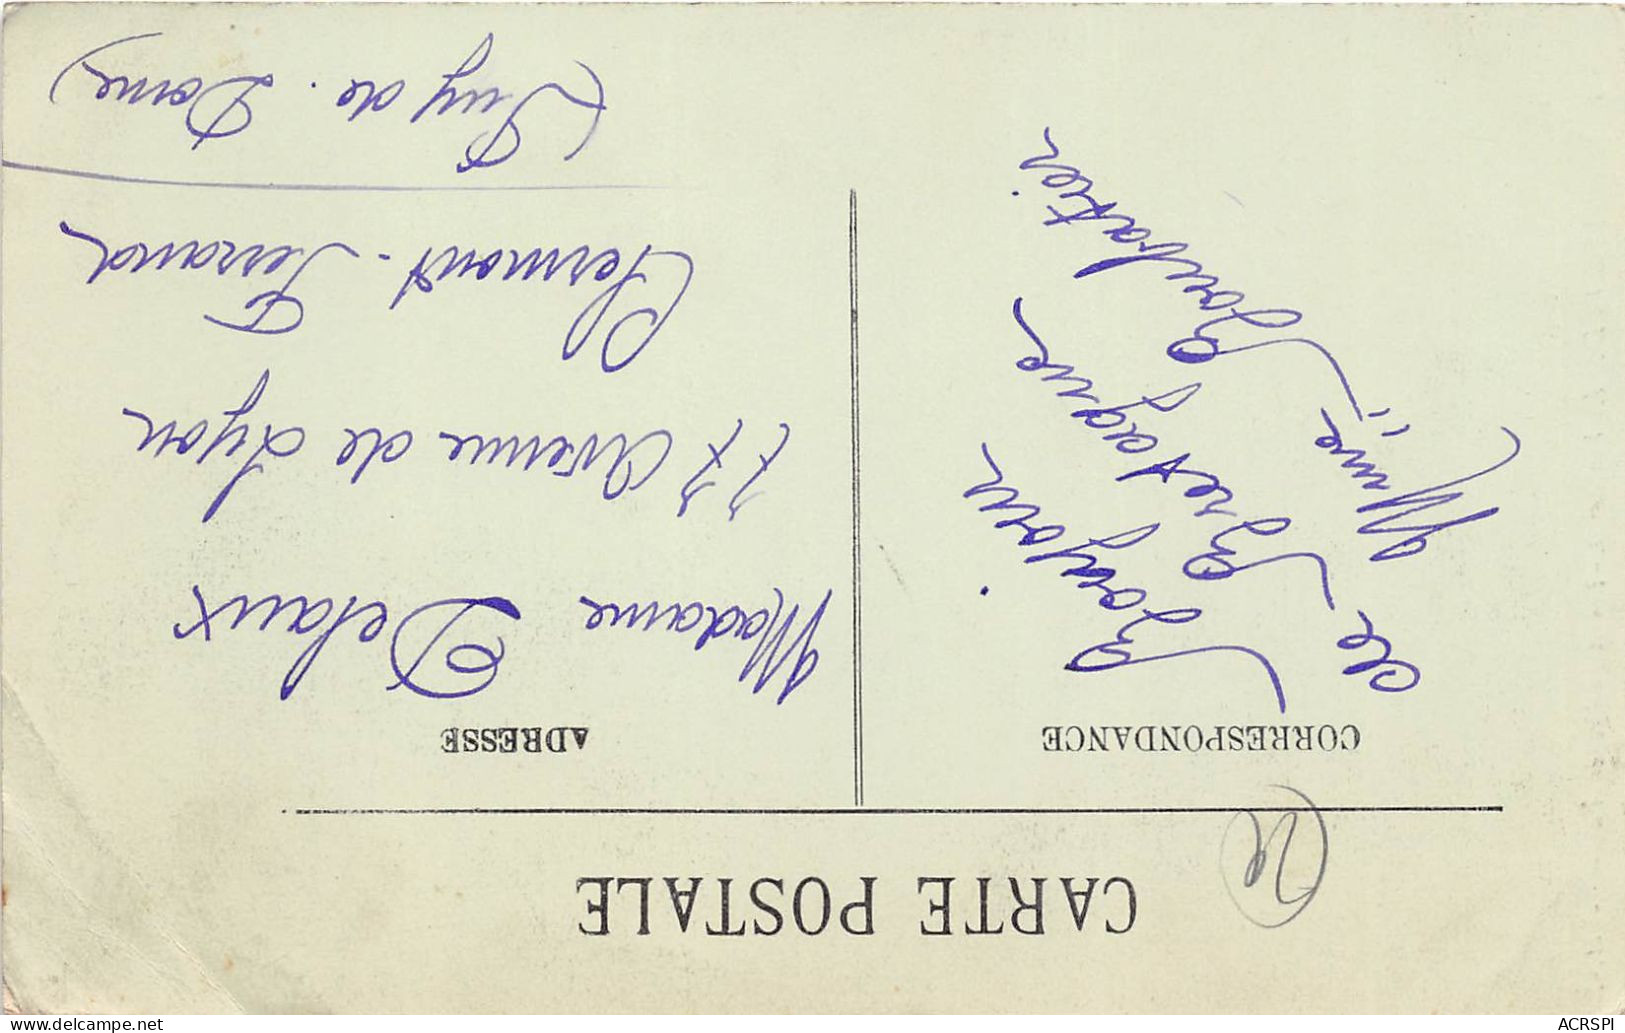 CARTE POSTALE
CORRESPONDANCE
Bonjour
de Bretagne
Mme Boubatier
ADRESSE
Madame Delaux
77 Avenue de Lyon
Clermont-Ferrand
(Puy de Dome)
delcampe.net
ACRSPI